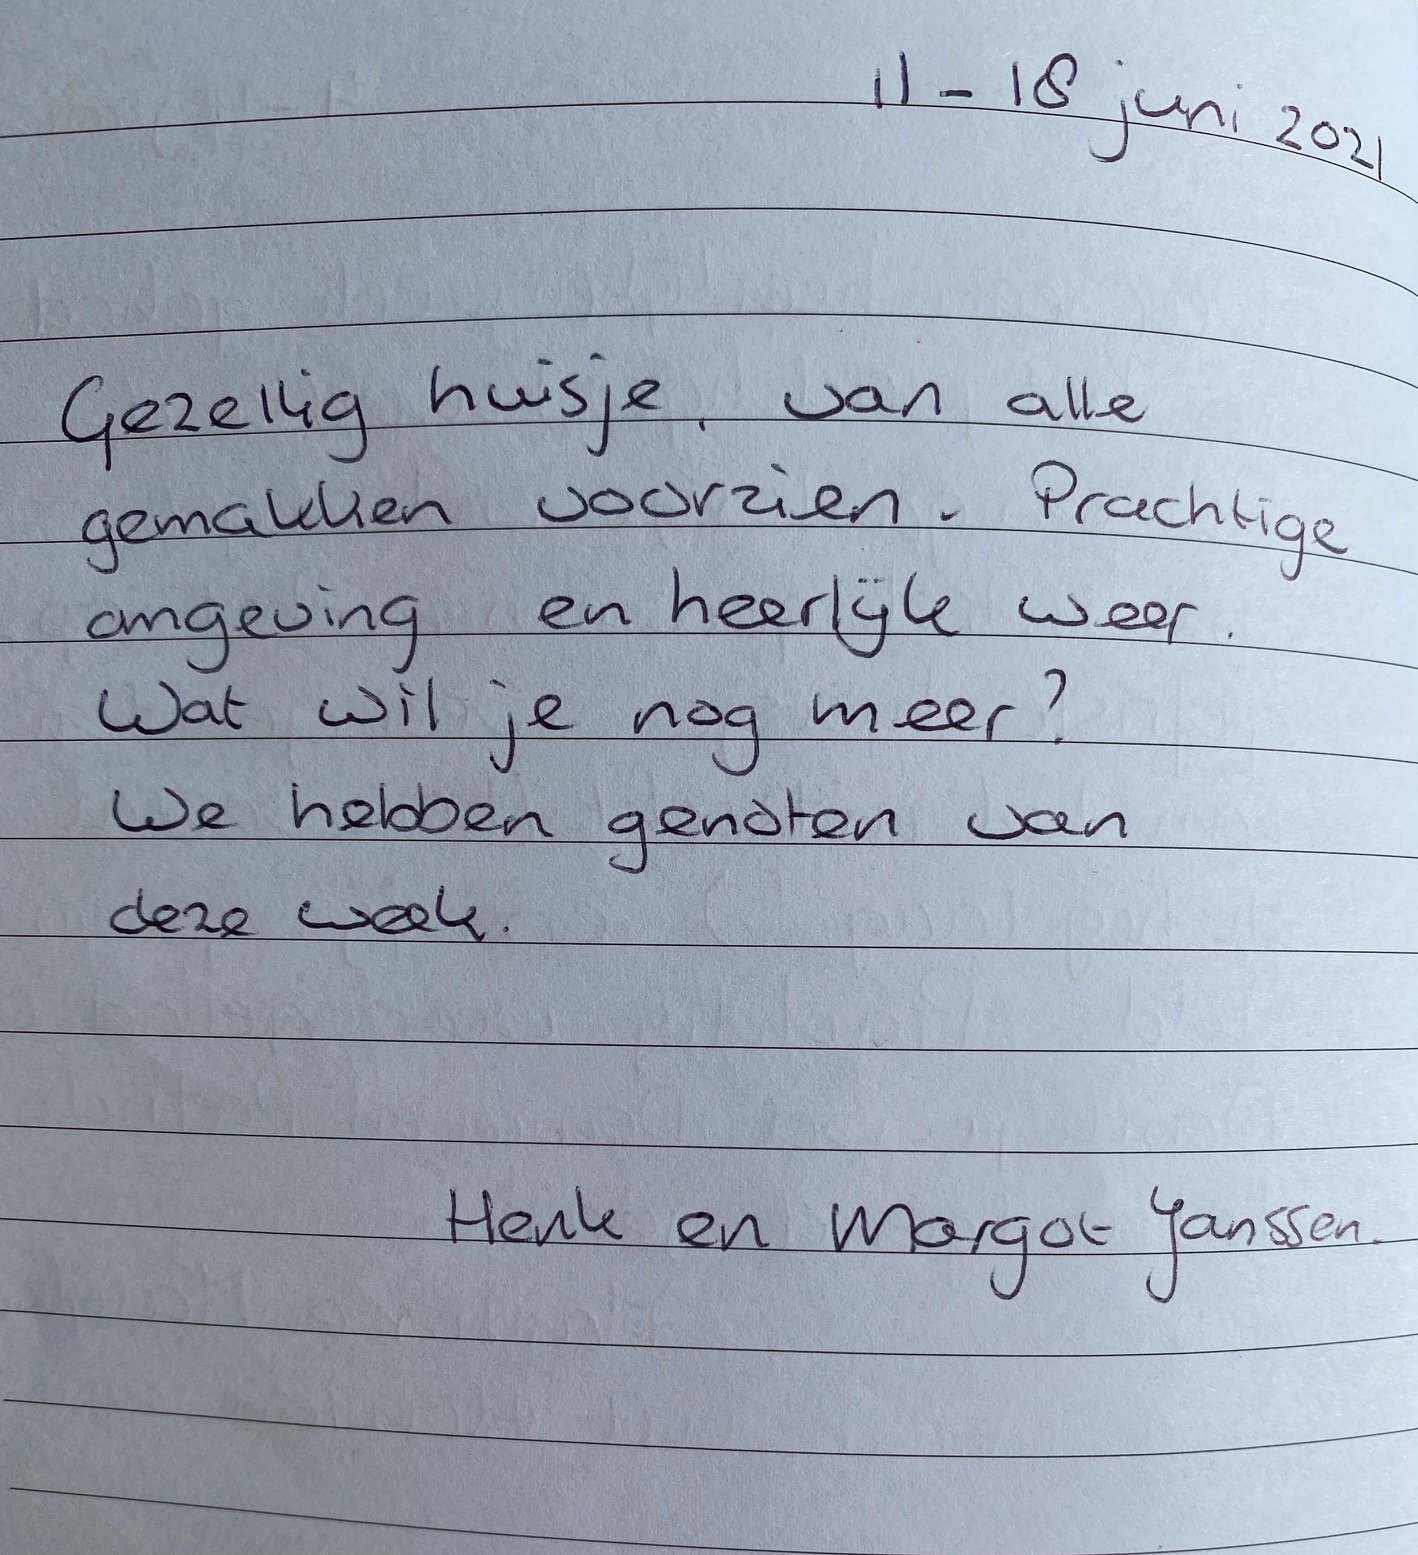 11 - 18 juni 2021
Gezellig huisje, van alle
gemakken voorzien. Prachtige
omgeving en heerlijk weer.
Wat wil je nog meer?
We hebben genoten van
deze week.
Henk en Margot Janssen.